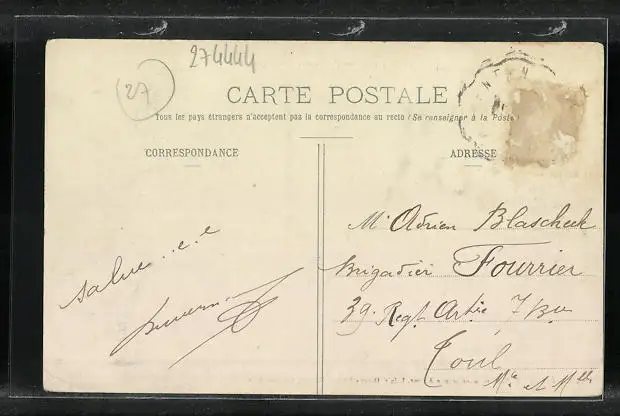 274444
27
CARTE POSTALE
Tous les pays étrangers n'acceptent pas la correspondance au recto (Se renseigner à la Poste)
CORRESPONDANCE
ADRESSE
Mr Adrien Blascheck
Brigadier Fourrier
39. Regt Artie 7 Bie
Toul
salue
Me et Mlle